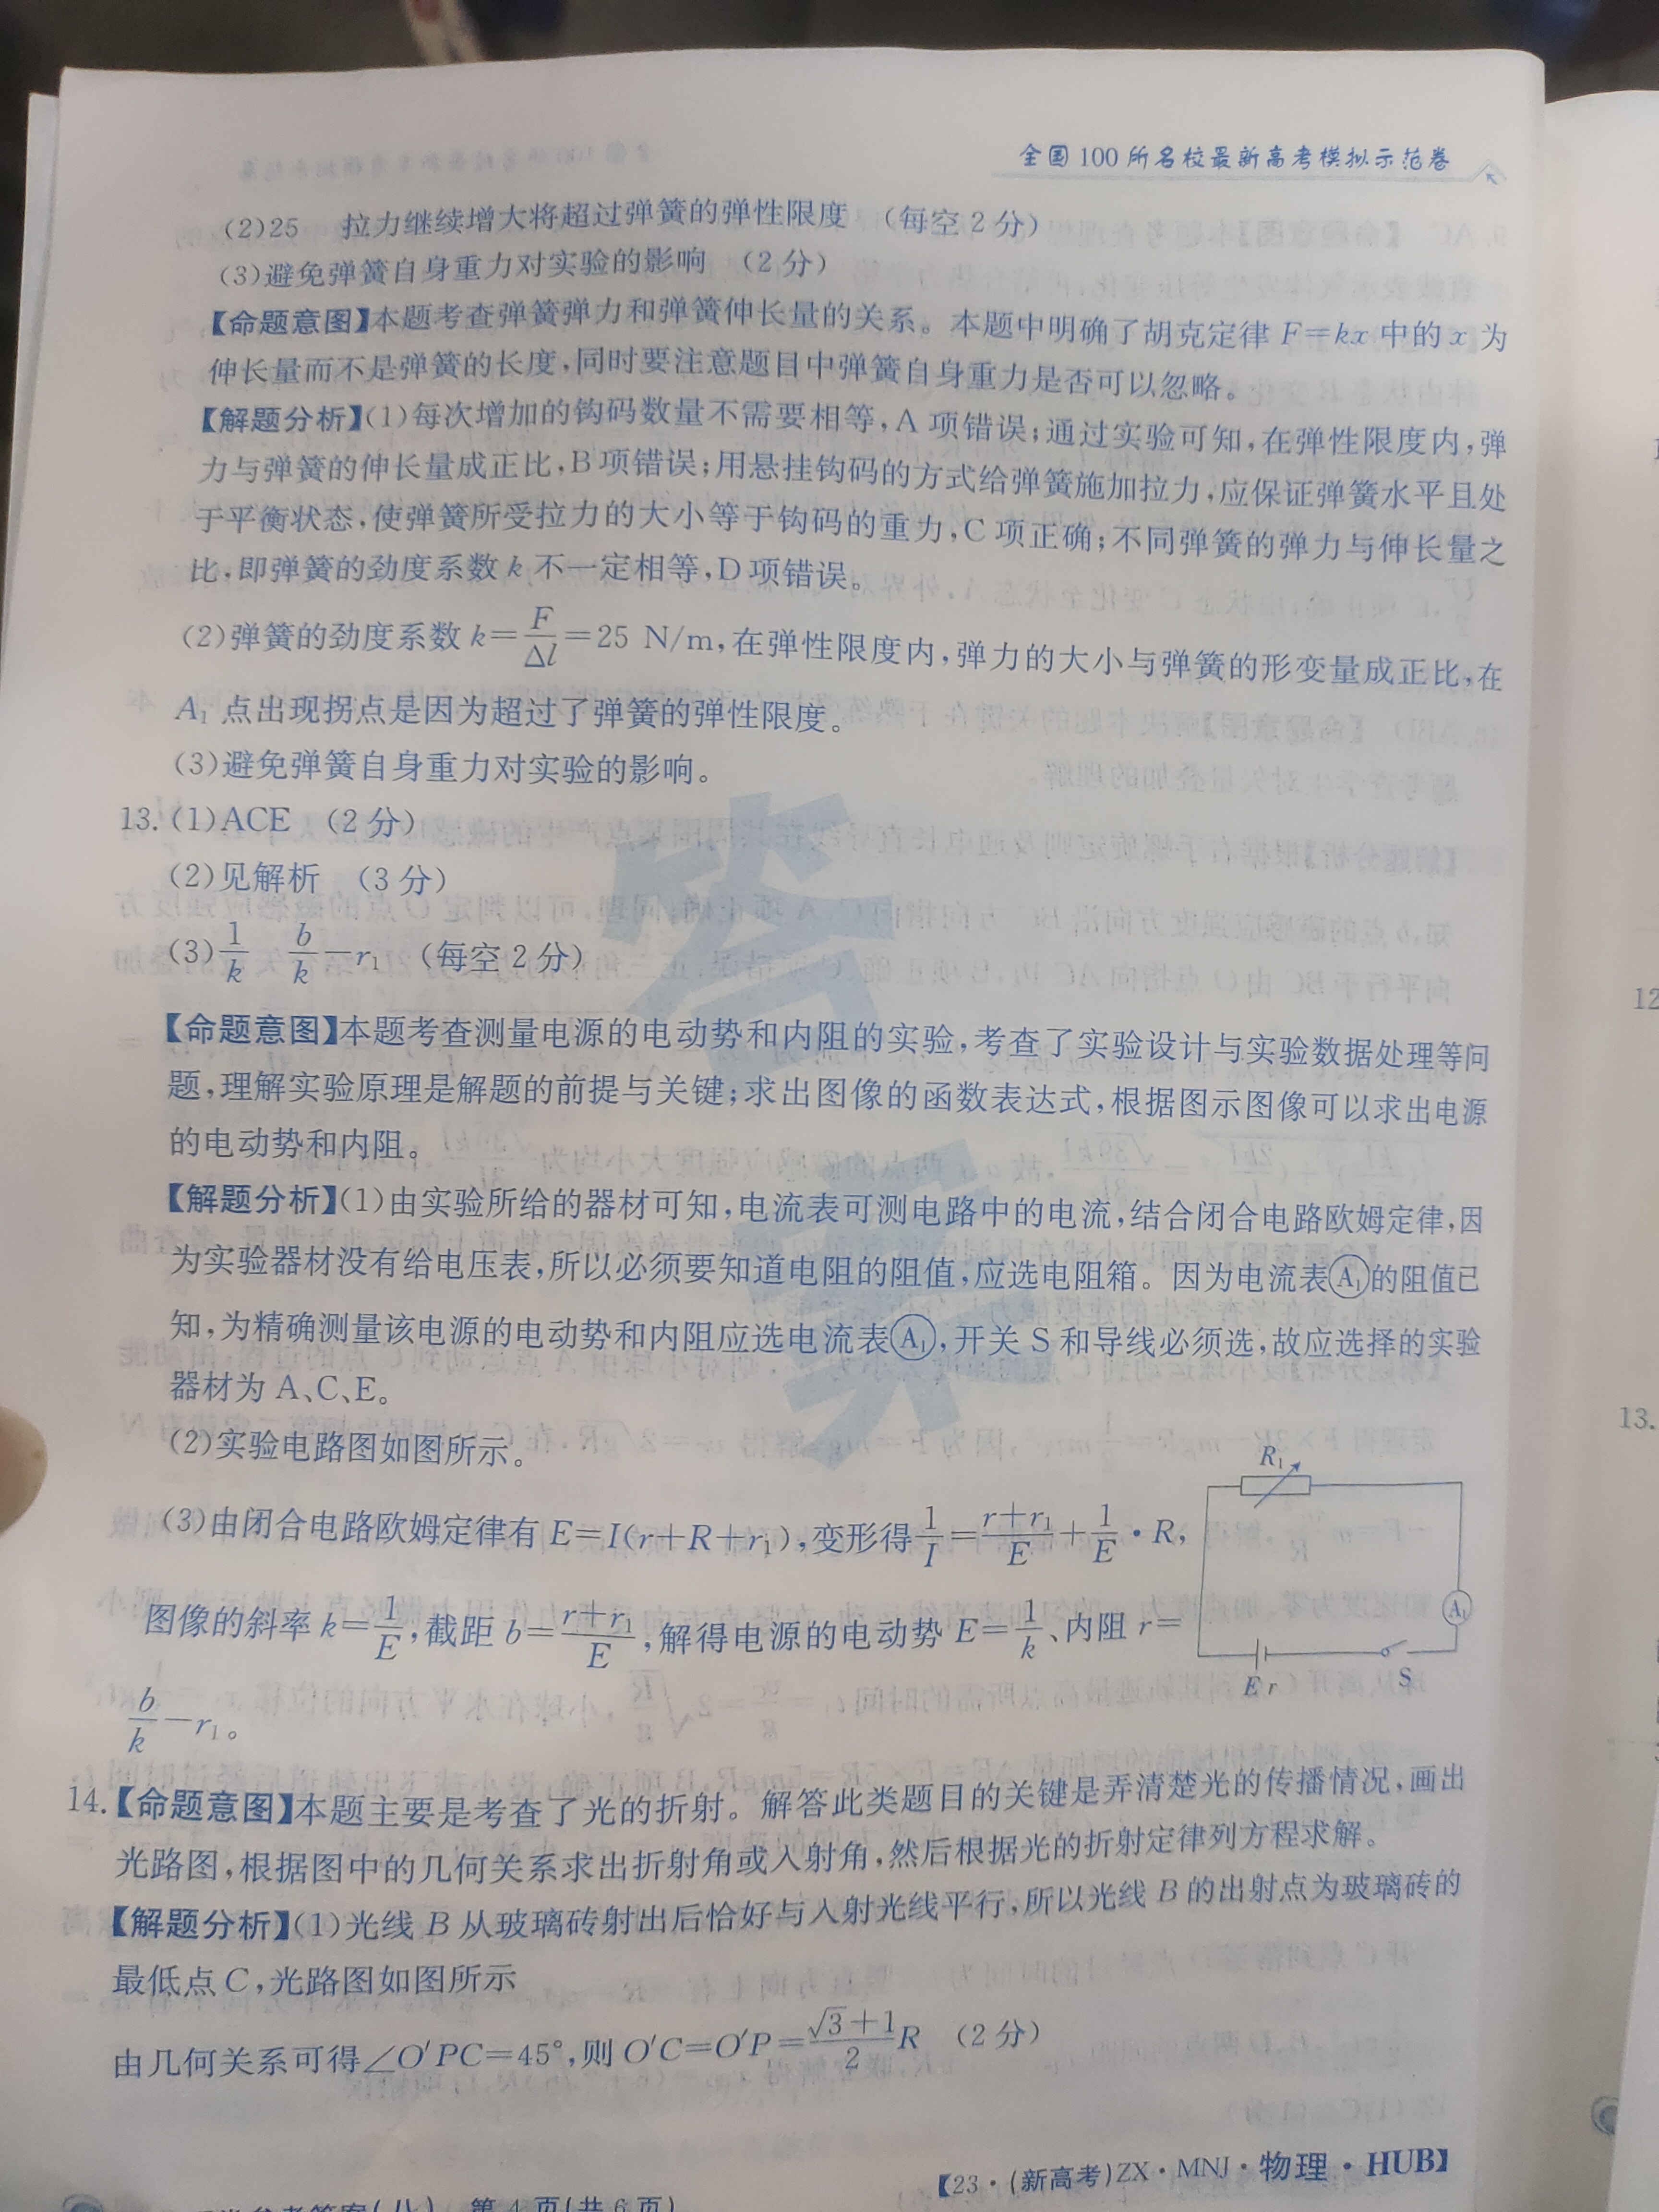 全国100所名校最新高考模拟示范卷
(2)25 拉力继续增大将超过弹簧的弹性限度 (每空2分)
(3)避免弹簧自身重力对实验的影响 (2分)
【命题意图】本题考查弹簧弹力和弹簧伸长量的关系。本题中明确了胡克定律F=kx中的x为
伸长量而不是弹簧的长度,同时要注意题目中弹簧自身重力是否可以忽略。
【解题分析】(1)每次增加的钩码数量不需要相等,A项错误;通过实验可知,在弹性限度内,弹
力与弹簧的伸长量成正比,B项错误;用悬挂钩码的方式给弹簧施加拉力,应保证弹簧水平且处
于平衡状态,使弹簧所受拉力的大小等于钩码的重力,C项正确;不同弹簧的弹力与伸长量之
比,即弹簧的劲度系数k不一定相等,D项错误。
(2)弹簧的劲度系数k=F/Δl=25 N/m,在弹性限度内,弹力的大小与弹簧的形变量成正比,在
A₁点出现拐点是因为超过了弹簧的弹性限度。
(3)避免弹簧自身重力对实验的影响。
13.(1)ACE (2分)
(2)见解析 (3分)
(3)1/k b/k−r₁ (每空2分)
【命题意图】本题考查测量电源的电动势和内阻的实验,考查了实验设计与实验数据处理等问
题,理解实验原理是解题的前提与关键;求出图像的函数表达式,根据图示图像可以求出电源
的电动势和内阻。
【解题分析】(1)由实验所给的器材可知,电流表可测电路中的电流,结合闭合电路欧姆定律,因
为实验器材没有给电压表,所以必须要知道电阻的阻值,应选电阻箱。因为电流表A₁的阻值已
知,为精确测量该电源的电动势和内阻应选电流表A₁,开关S和导线必须选,故应选择的实验
器材为A、C、E。
(2)实验电路图如图所示。
R₁
A₁
E r
S
(3)由闭合电路欧姆定律有E=I(r+R+r₁),变形得1/I=(r+r₁)/E+1/E·R,
图像的斜率k=1/E,截距b=(r+r₁)/E,解得电源的电动势E=1/k、内阻r=
b/k−r₁。
14.【命题意图】本题主要是考查了光的折射。解答此类题目的关键是弄清楚光的传播情况,画出
光路图,根据图中的几何关系求出折射角或入射角,然后根据光的折射定律列方程求解。
【解题分析】(1)光线B从玻璃砖射出后恰好与入射光线平行,所以光线B的出射点为玻璃砖的
最低点C,光路图如图所示
由几何关系可得∠O′PC=45°,则O′C=O′P=(√3+1)/2 R (2分)
【23·(新高考)ZX·MNJ·物理·HUB】
参考答案(八) 第4页(共6页)
答案
12
13.